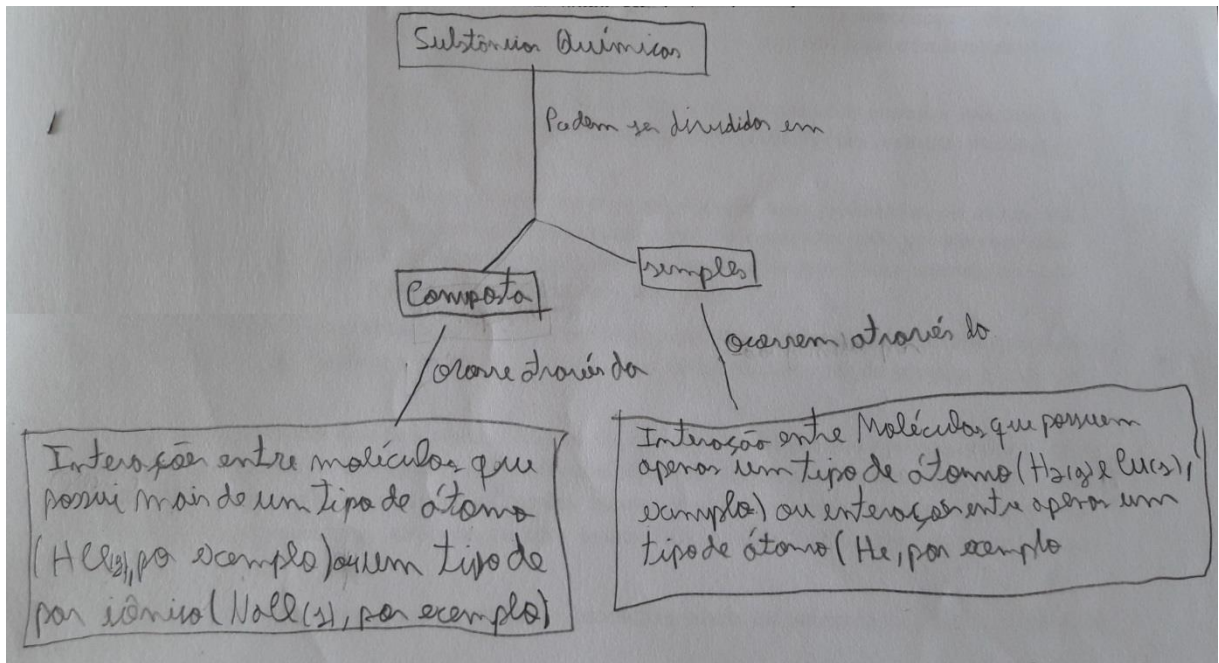 Substâncias Químicas
Podem ser divididas em
Composta
simples
ocorre através da
ocorrem através da
Interação entre moléculas que
possui mais de um tipo de átomo
(HCl(g), por exemplo) ou um tipo de
par iônico (NaCl(s), por exemplo)
Interação entre Moléculas que possuem
apenas um tipo de átomo (H2(g) e Cu(s),
exemplo) ou enteração entre apenas um
tipo de átomo (He, por exemplo